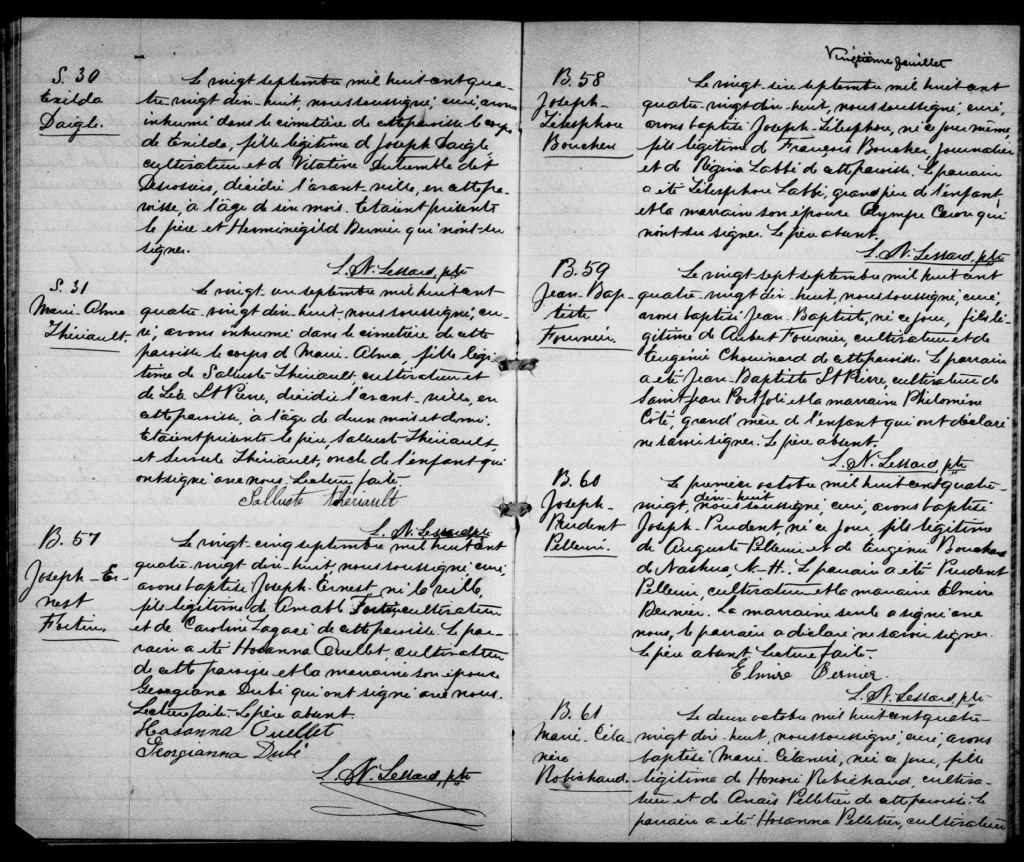 S. 30
Exilda
Daigle.
Le vingt septembre mil huit cent qua-
tre-vingt dix-huit, nous soussigné, curé, avons
inhumé dans le cimetière de cette paroisse le corps
de Exilda, fille légitime de Joseph Daigle,
cultivateur et de Vitaline Dutremble dit
Desrosiers, décédée l'avant-veille, en cette pa-
roisse, à l'âge de six mois. Etaient présents
le père et Herménégild Bernier qui n'ont su
signer.
L. N. Lessard, ptre
S. 31
Marie-Alma
Thériault.
Le vingt-un septembre mil huit cent
quatre-vingt dix-huit, nous soussigné, cu-
ré, avons inhumé dans le cimetière de cette
paroisse le corps de Marie-Alma, fille légi-
time de Salluste Thériault cultivateur et
de Léa St Pierre, décédée l'avant-veille, en
cette paroisse, à l'âge de deux mois et demi.
Etaient présents le père Salluste Thériault,
et Thériault, oncle de l'enfant qui
ont signé avec nous. Lecture faite.
Salluste Thériault
L. N. Lessard, ptre
B. 57
Joseph-Er-
nest
Fortin.
Le vingt-cinq septembre mil huit cent
quatre-vingt dix-huit, nous soussigné, curé,
avons baptisé Joseph-Ernest, né la veille,
fils légitime de Amable Fortin, cultivateur
et de Caroline Lagacé de cette paroisse. Le par-
rain a été Hosanna Ouellet, cultivateur
de cette paroisse et la marraine son épouse
Georgiana Dubé qui ont signé avec nous.
Lecture faite. Le père absent.
Hosanna Ouellet
Georgianna Dubé
L. N. Lessard, ptre
Vingtième feuillet
B. 58
Joseph-
Télesphore
Boucher
Le vingt-six septembre mil huit cent
quatre-vingt dix-huit, nous soussigné, curé,
avons baptisé Joseph-Télesphore, né ce jour même,
fils légitime de François Boucher journalier
et de Régina Labbé de cette paroisse. Le parrain
a été Télesphore Labbé, grand père de l'enfant,
et la marraine son épouse Olympe Caron qui
n'ont su signer. Le père absent.
L. N. Lessard, ptre
B. 59
Jean-Bap-
tiste
Fournier.
Le vingt-sept septembre mil huit cent
quatre-vingt dix-huit, nous soussigné, curé,
avons baptisé Jean-Baptiste, né ce jour, fils lé-
gitime de Aubert Fournier, cultivateur et de
Eugénie Chouinard de cette paroisse. Le parrain
a été Jean-Baptiste St Pierre, cultivateur de
Saint Jean Port Joli et la marraine Philomène
Coté, grand'mère de l'enfant qui ont déclaré
ne savoir signer. Le père absent.
L. N. Lessard, ptre
B. 60
Joseph-
Prudent
Pellerin.
Le premier octobre mil huit cent quatre-
dix-huit
vingt, nous soussigné, curé, avons baptisé
Joseph-Prudent, né ce jour, fils légitime
de Auguste Pellerin et de Eugénie Bouchard
de Nashua, N-H. Le parrain a été Prudent
Pellerin, cultivateur et la marraine Elmire
Bernier. La marraine seule a signé avec
nous, le parrain a déclaré ne savoir signer.
Le père absent. Lecture faite.
Elmire Bernier.
L. N. Lessard, ptre
B. 61
Marie-Céla-
nire
Robichaud.
Le deux octobre mil huit cent quatre-
vingt dix-huit, nous soussigné, curé, avons
baptisé Marie-Célanire, née ce jour, fille
légitime de Honoré Robichaud, cultiva-
teur et de Anaïs Pelletier de cette paroisse. Le
parrain a été Hosanna Pelletier, cultivateur